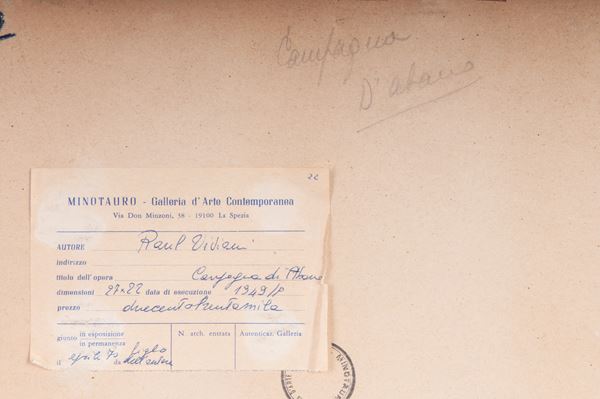 Campagna
D'abano
2c
MINOTAURO - Galleria d'Arte Contemporanea
Via Don Minzoni, 38 - 19100 La Spezia
AUTORE Raul Viviani
indirizzo
titolo dell'opera Campagna di Abano
dimensioni 27x22 data di esecuzione 1949/P
prezzo duecentotrentamila
giunto in esposizione
in permanenza
N. arch. entrata
Autenticaz. Galleria
il aprile 73 da figlio
dell'autore
MINOTAUR